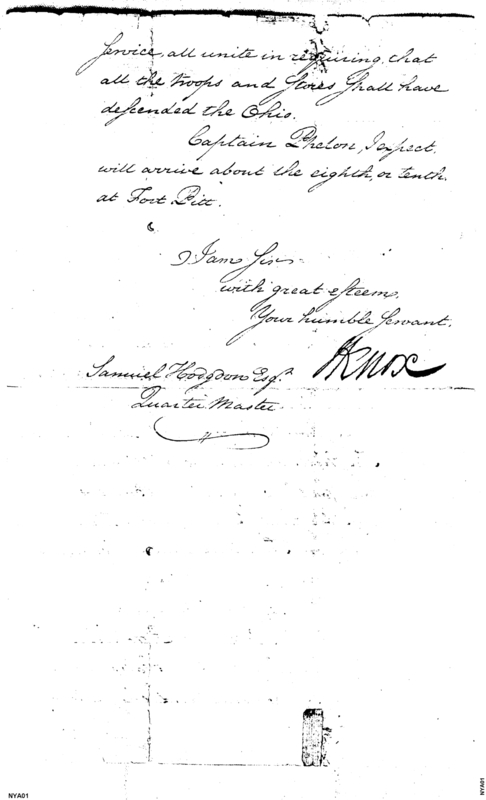 Service, all unite in requiring, that
all the troops and Stores Shall have
descended the Ohio.
Captain Phelon, I expect,
will arrive about the eighth, or tenth
at Fort Pitt.
I am Sir
with great esteem,
Your humble Servant.
HKnox
Samuel Hodgdon Esqr.
Quarter Master
NYA01
NYA01